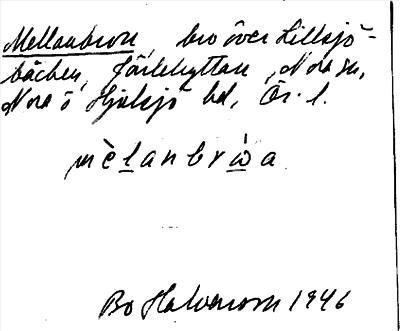 Mellanbron, bro över Lillsjö-
bäcken, Järlehyttan, Nora sn,
Nora o Hjulsjö bd, Ör. l.
mèlanbrẁa
Bo Halvarson 1946